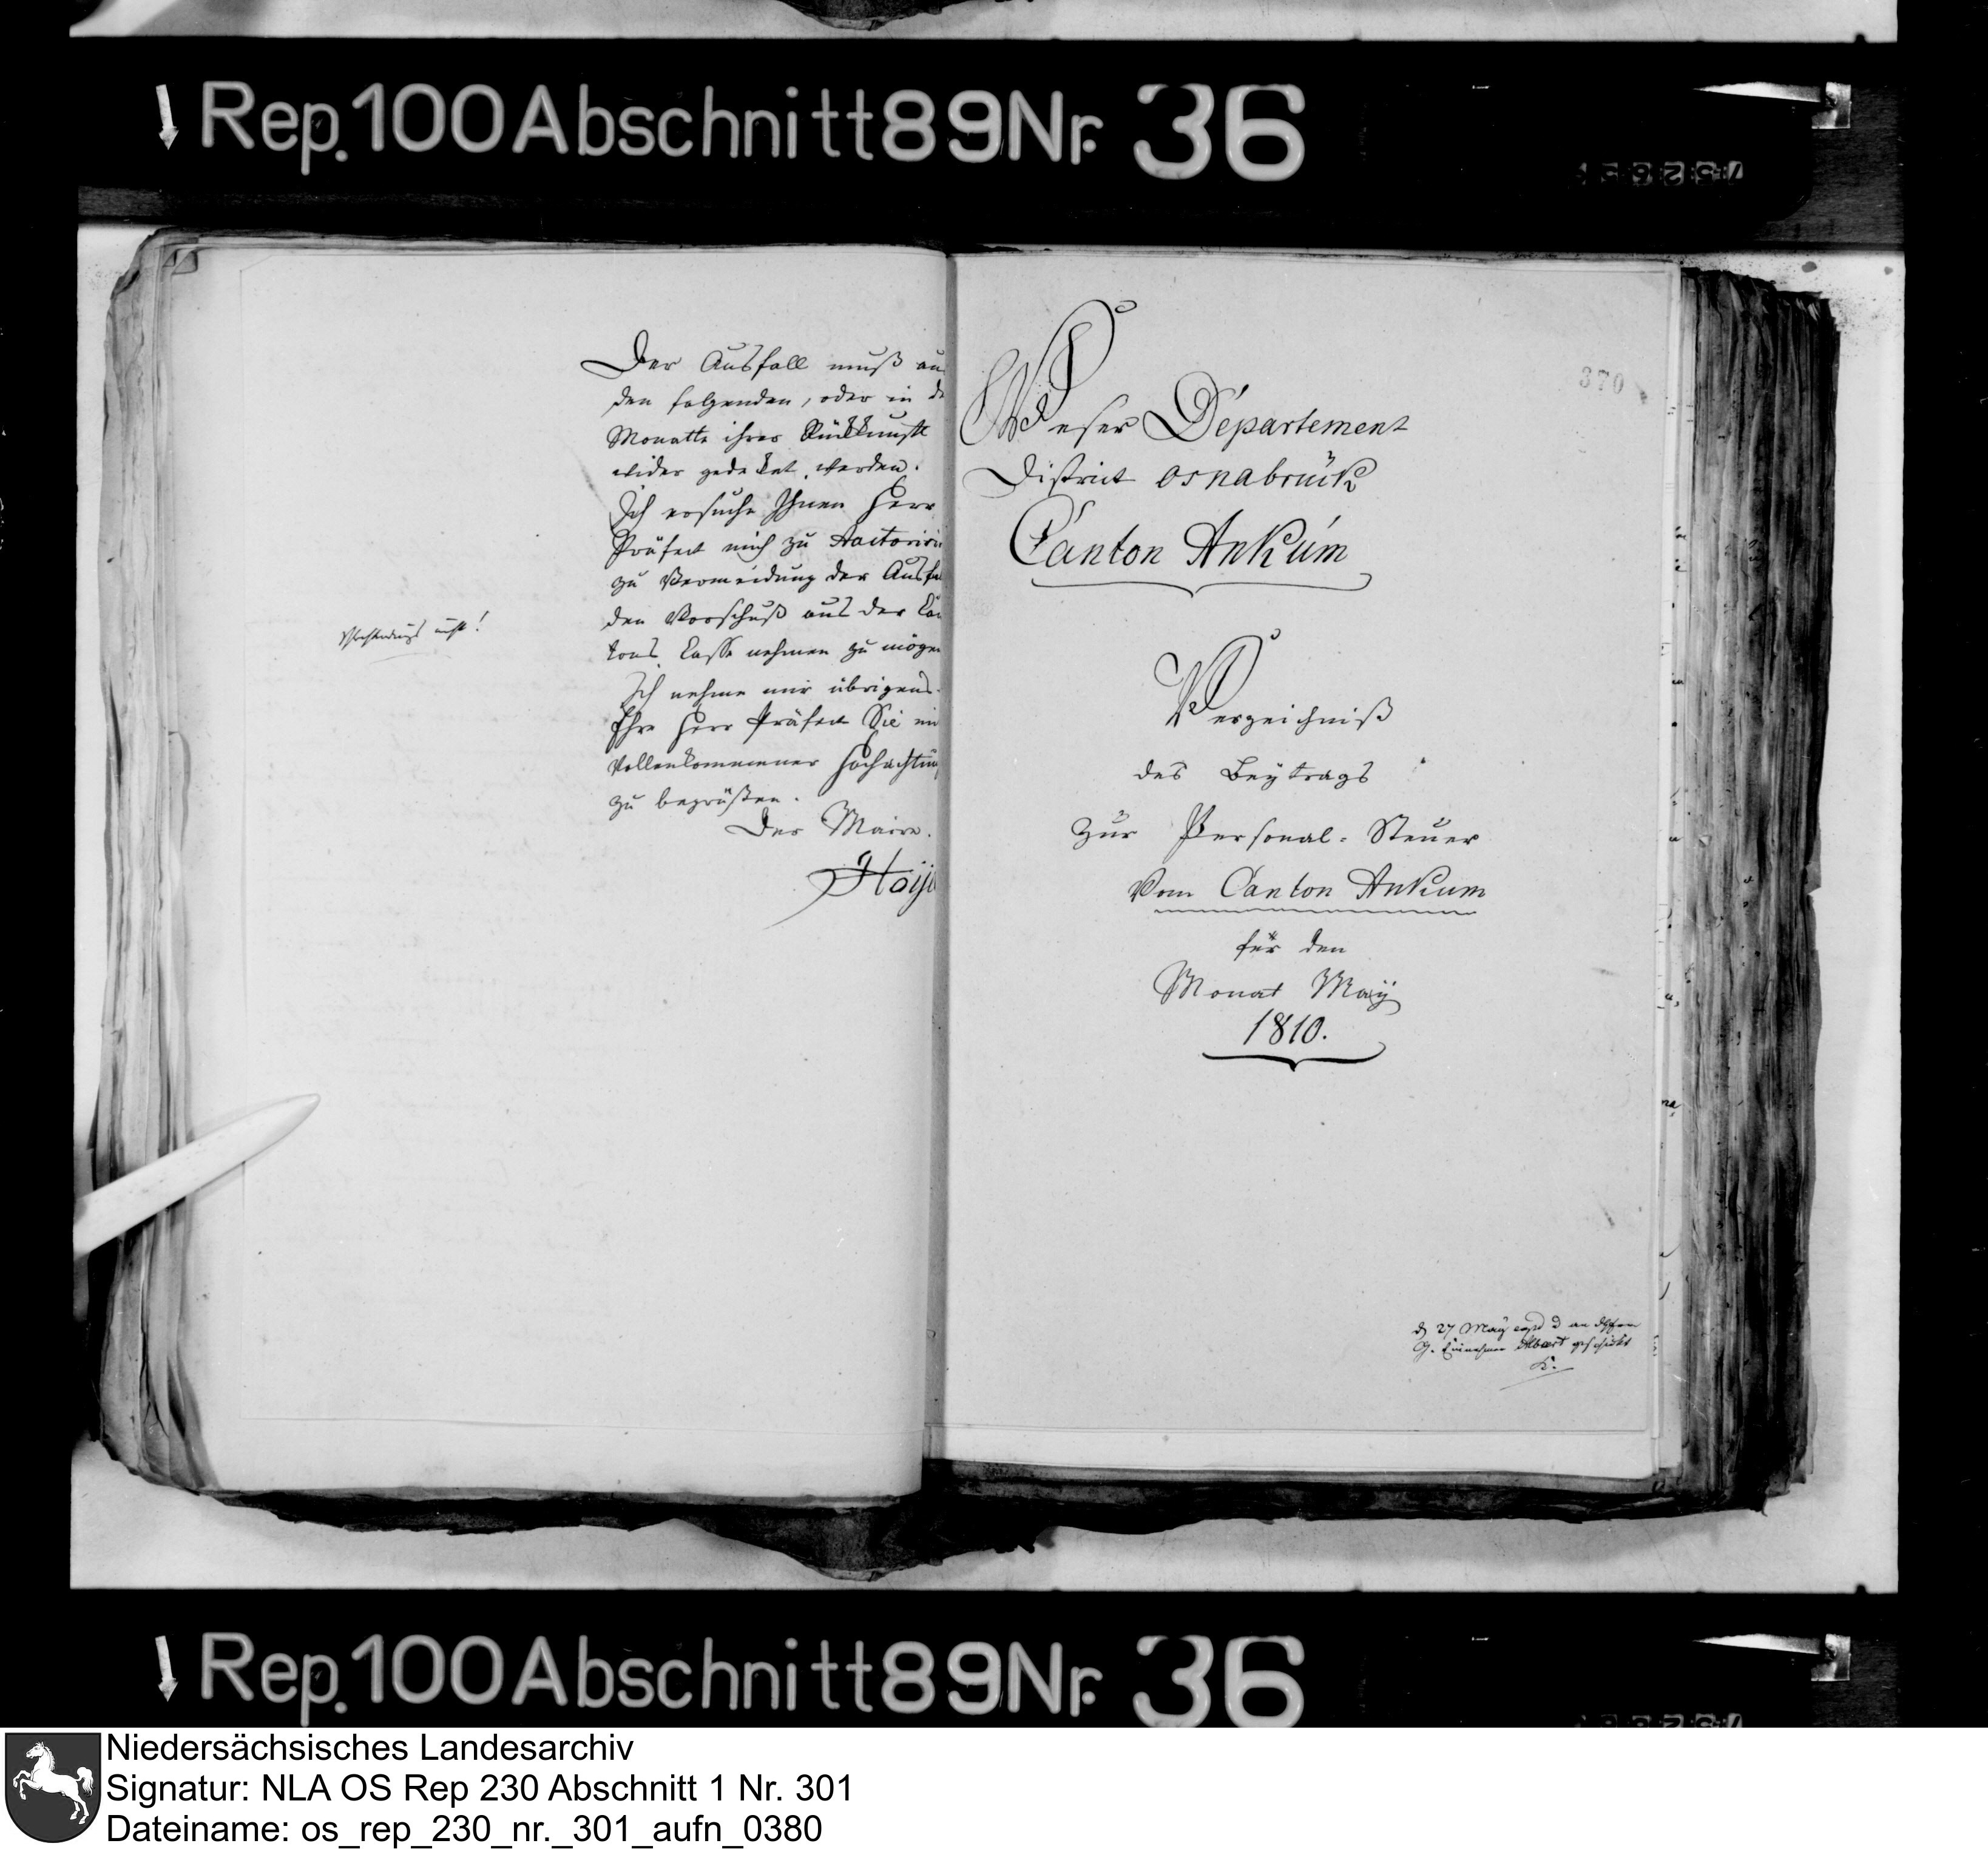 Rep. 100 Abschnitt 89 Nr. 36
Der Ausfall muß au
den folgenden, oder in de
Monatte ihrer Rükkunft
wider gedeket werden.
Ich ersuche Ihnen Herr
Präfect mich zu
zu Vermeidung der Ausfa
den Vorschuß aus der Can
tons Casse nehmen zu mögen
Ich nehme mir übrigens
Ehre Herr Präfect Sie mi
Vollenkommener Hochachtung
zu begrüßen.
Der Maire.
nicht!
370
Weser Département
District Osnabrück
Canton Ankum
Verzeichniß
des Beytrags
zur Personal-Steuer
Vom Canton Ankum
für den
Monat Maÿ
1810.
27 Maÿ an
Einnehmer geschickt
K.
Rep. 100 Abschnitt 89 Nr. 36
Niedersächsisches Landesarchiv
Signatur: NLA OS Rep 230 Abschnitt 1 Nr. 301
Dateiname: os_rep_230_nr._301_aufn_0380